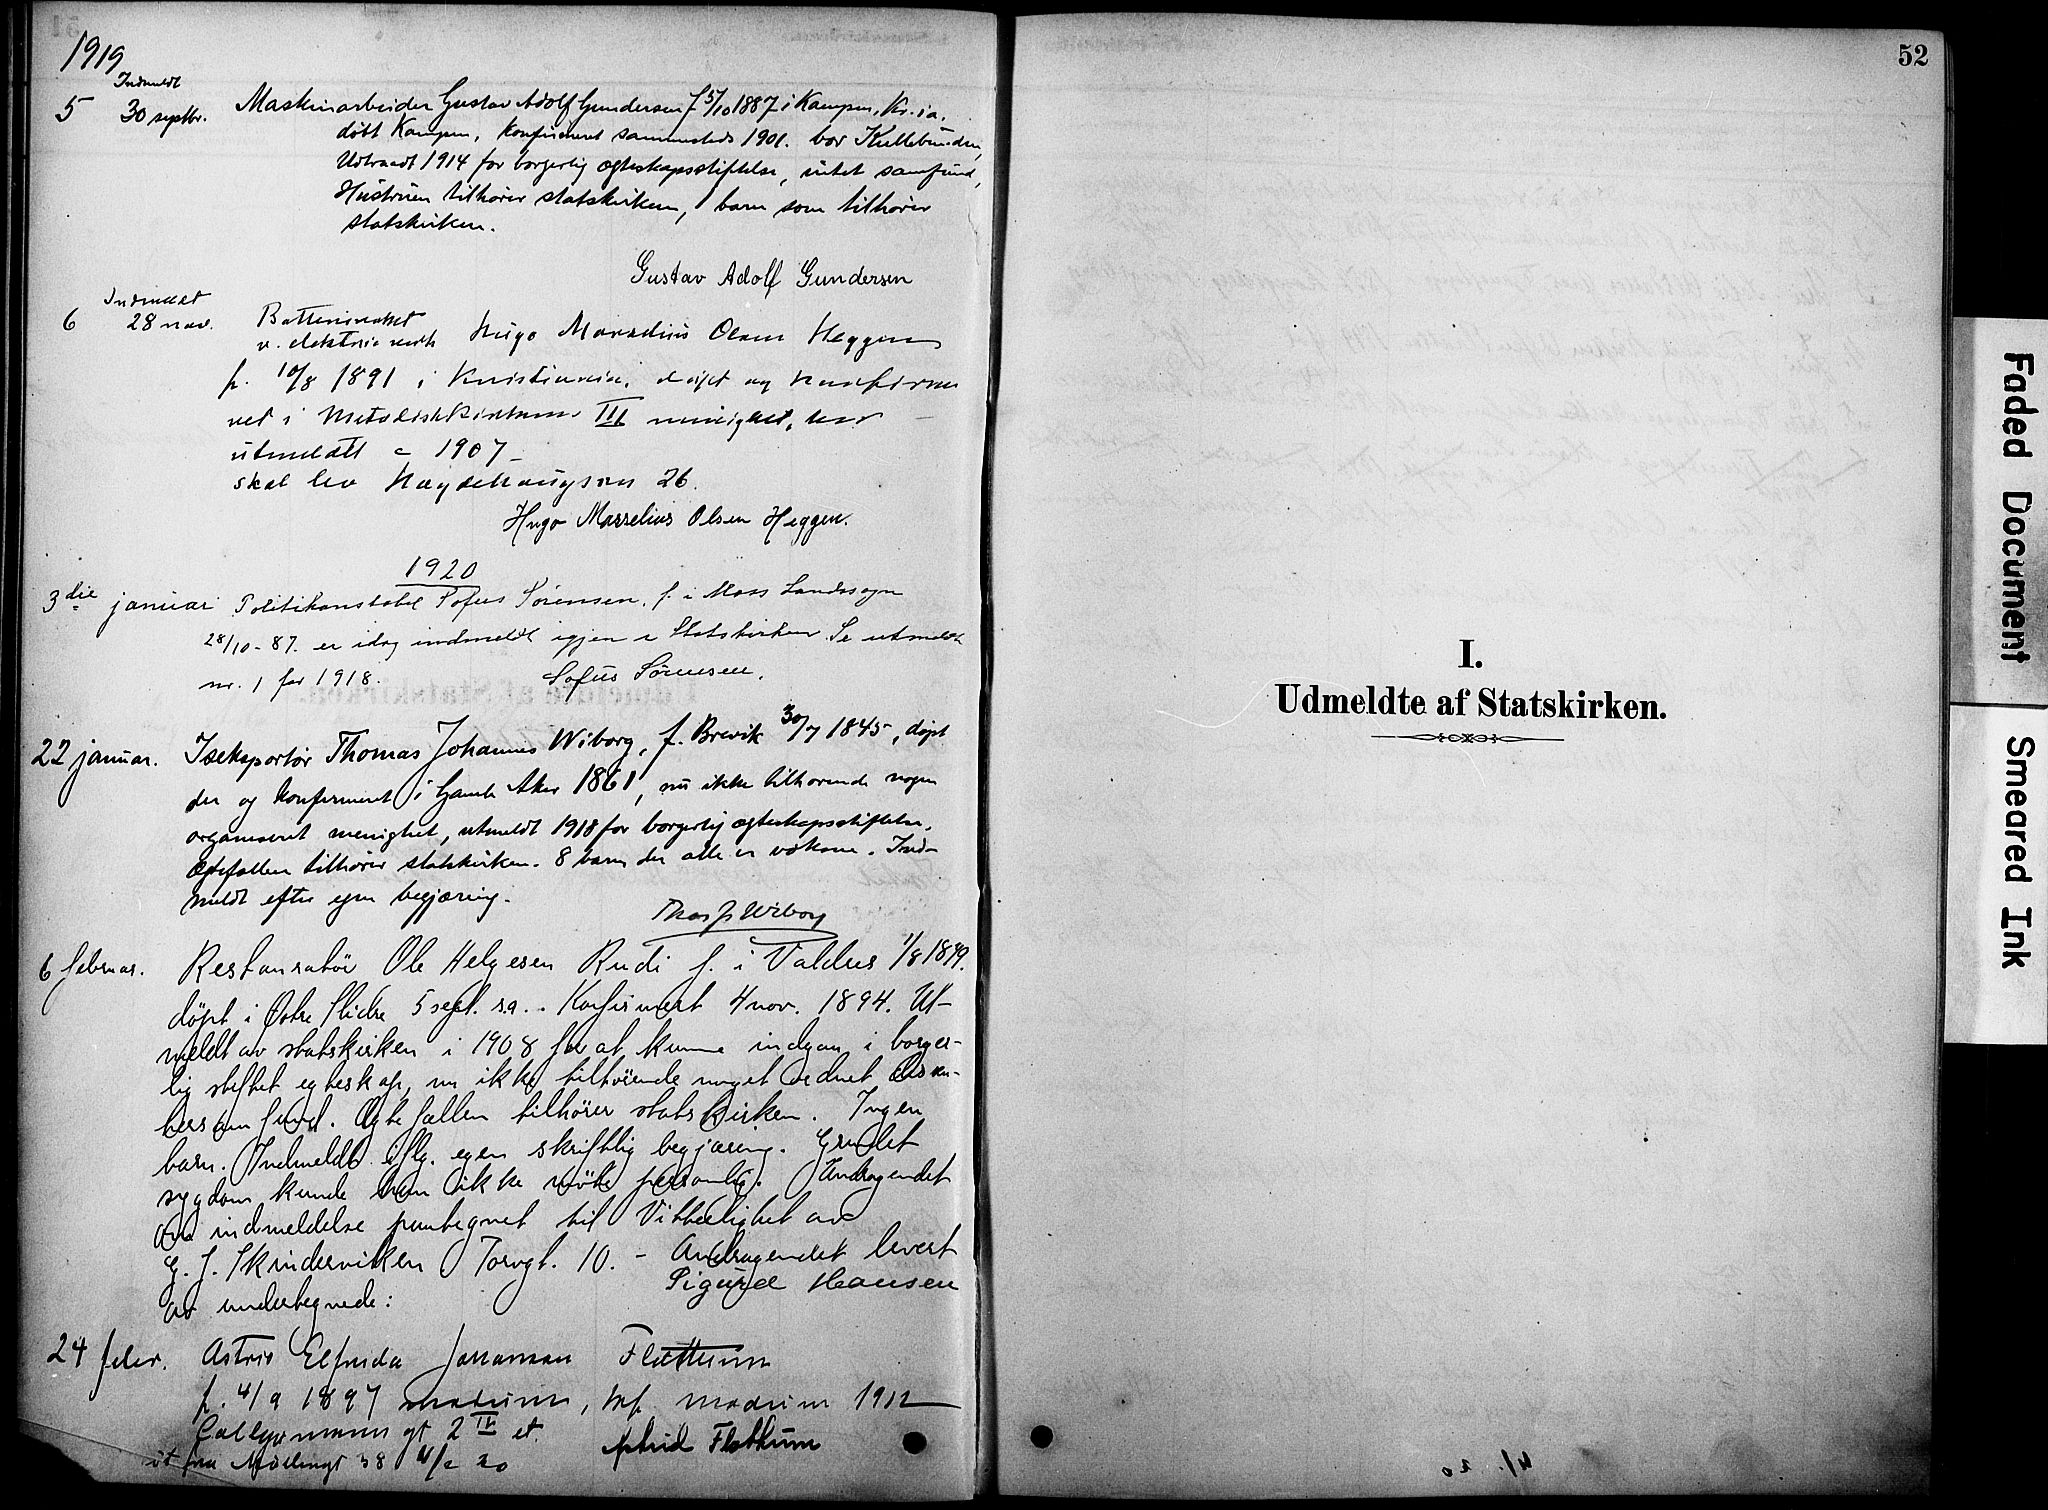 1919
Indmeldt
5 30 septbr. Maskinarbeider Gustav Adolf Gundersen f 5/10 1887 i Kampen, Kr.ia.
døbt Kampen, konfirmeret sammesteds 1901. bor
Udtraadt 1914 for borgerlig ægteskapsstiftelse, intet samfund,
Hustruen tilhører statskirken, 1 barn som tilhører
statskirken.
Gustav Adolf Gundersen
Indmeldt
6 28 nov.
v. elektric verk Hugo Marselius Olsen Heggen
f. 10/8 1891 i Kristiania, døpt og konfirme
ret i III menighet, har
utmeldt 1907
26.
Hugo Marselius Olsen Heggen.
1920
3die januar Politikonstabel Sofus Sørensen, f. i Moss Landssogn
28/10-87. er idag indmeldt igjen i Statskirken. Se utmeldt
nr. 1 for 1918. Sofus Sørensen.
22 januar. Iseksportør Thomas Johannes Wiborg, f. Brevik 30/7 1845, døpt
der og konfirmeret i Gamle Aker 1861, nu ikke tilhørende nogen
organiseret menighet, utmeldt 1918 for borgerlig ægteskapsstiftelse.
Ektefællen tilhører statskirken. 8 barn der alle er voksne. Ind-
meldt efter egen begjæring.
Thos J Wiborg
6 februar. Restauratør Ole Helgesen Rudi f. i Valdres 1/8 1879.
døpt i Østre Slidre 5 sept. s.a. Konfirmert 4 nov. 1894. Ut-
meldt av statskirken i 1908 for at kunne indgaa i borger-
lig stiftet egteskap, nu ikke tilhörende noget ordnet
Egtefællen tilhører statskirken. Ingen
barn. Indmeldt iflg. egen skriftlig begjæring. Grundet
sygdom kunde han ikke möte personlig. Andragendet
om indmeldelse paategnet til Vitterlighet av
G. J. Skindervikken Torvgt. 10. - Andragendet levert
av undertegnede: Sigurd Hansen
24 febr. Astrid Elfrida Johansen Flattum
f. 4/9 1897 Modum, kf. Modum 1912
gt 2 IV et. Astrid Flattum
ut fra Möllergt 38 4/2 20
52
I.
Udmeldte af Statskirken.
Faded Document
Smeared Ink